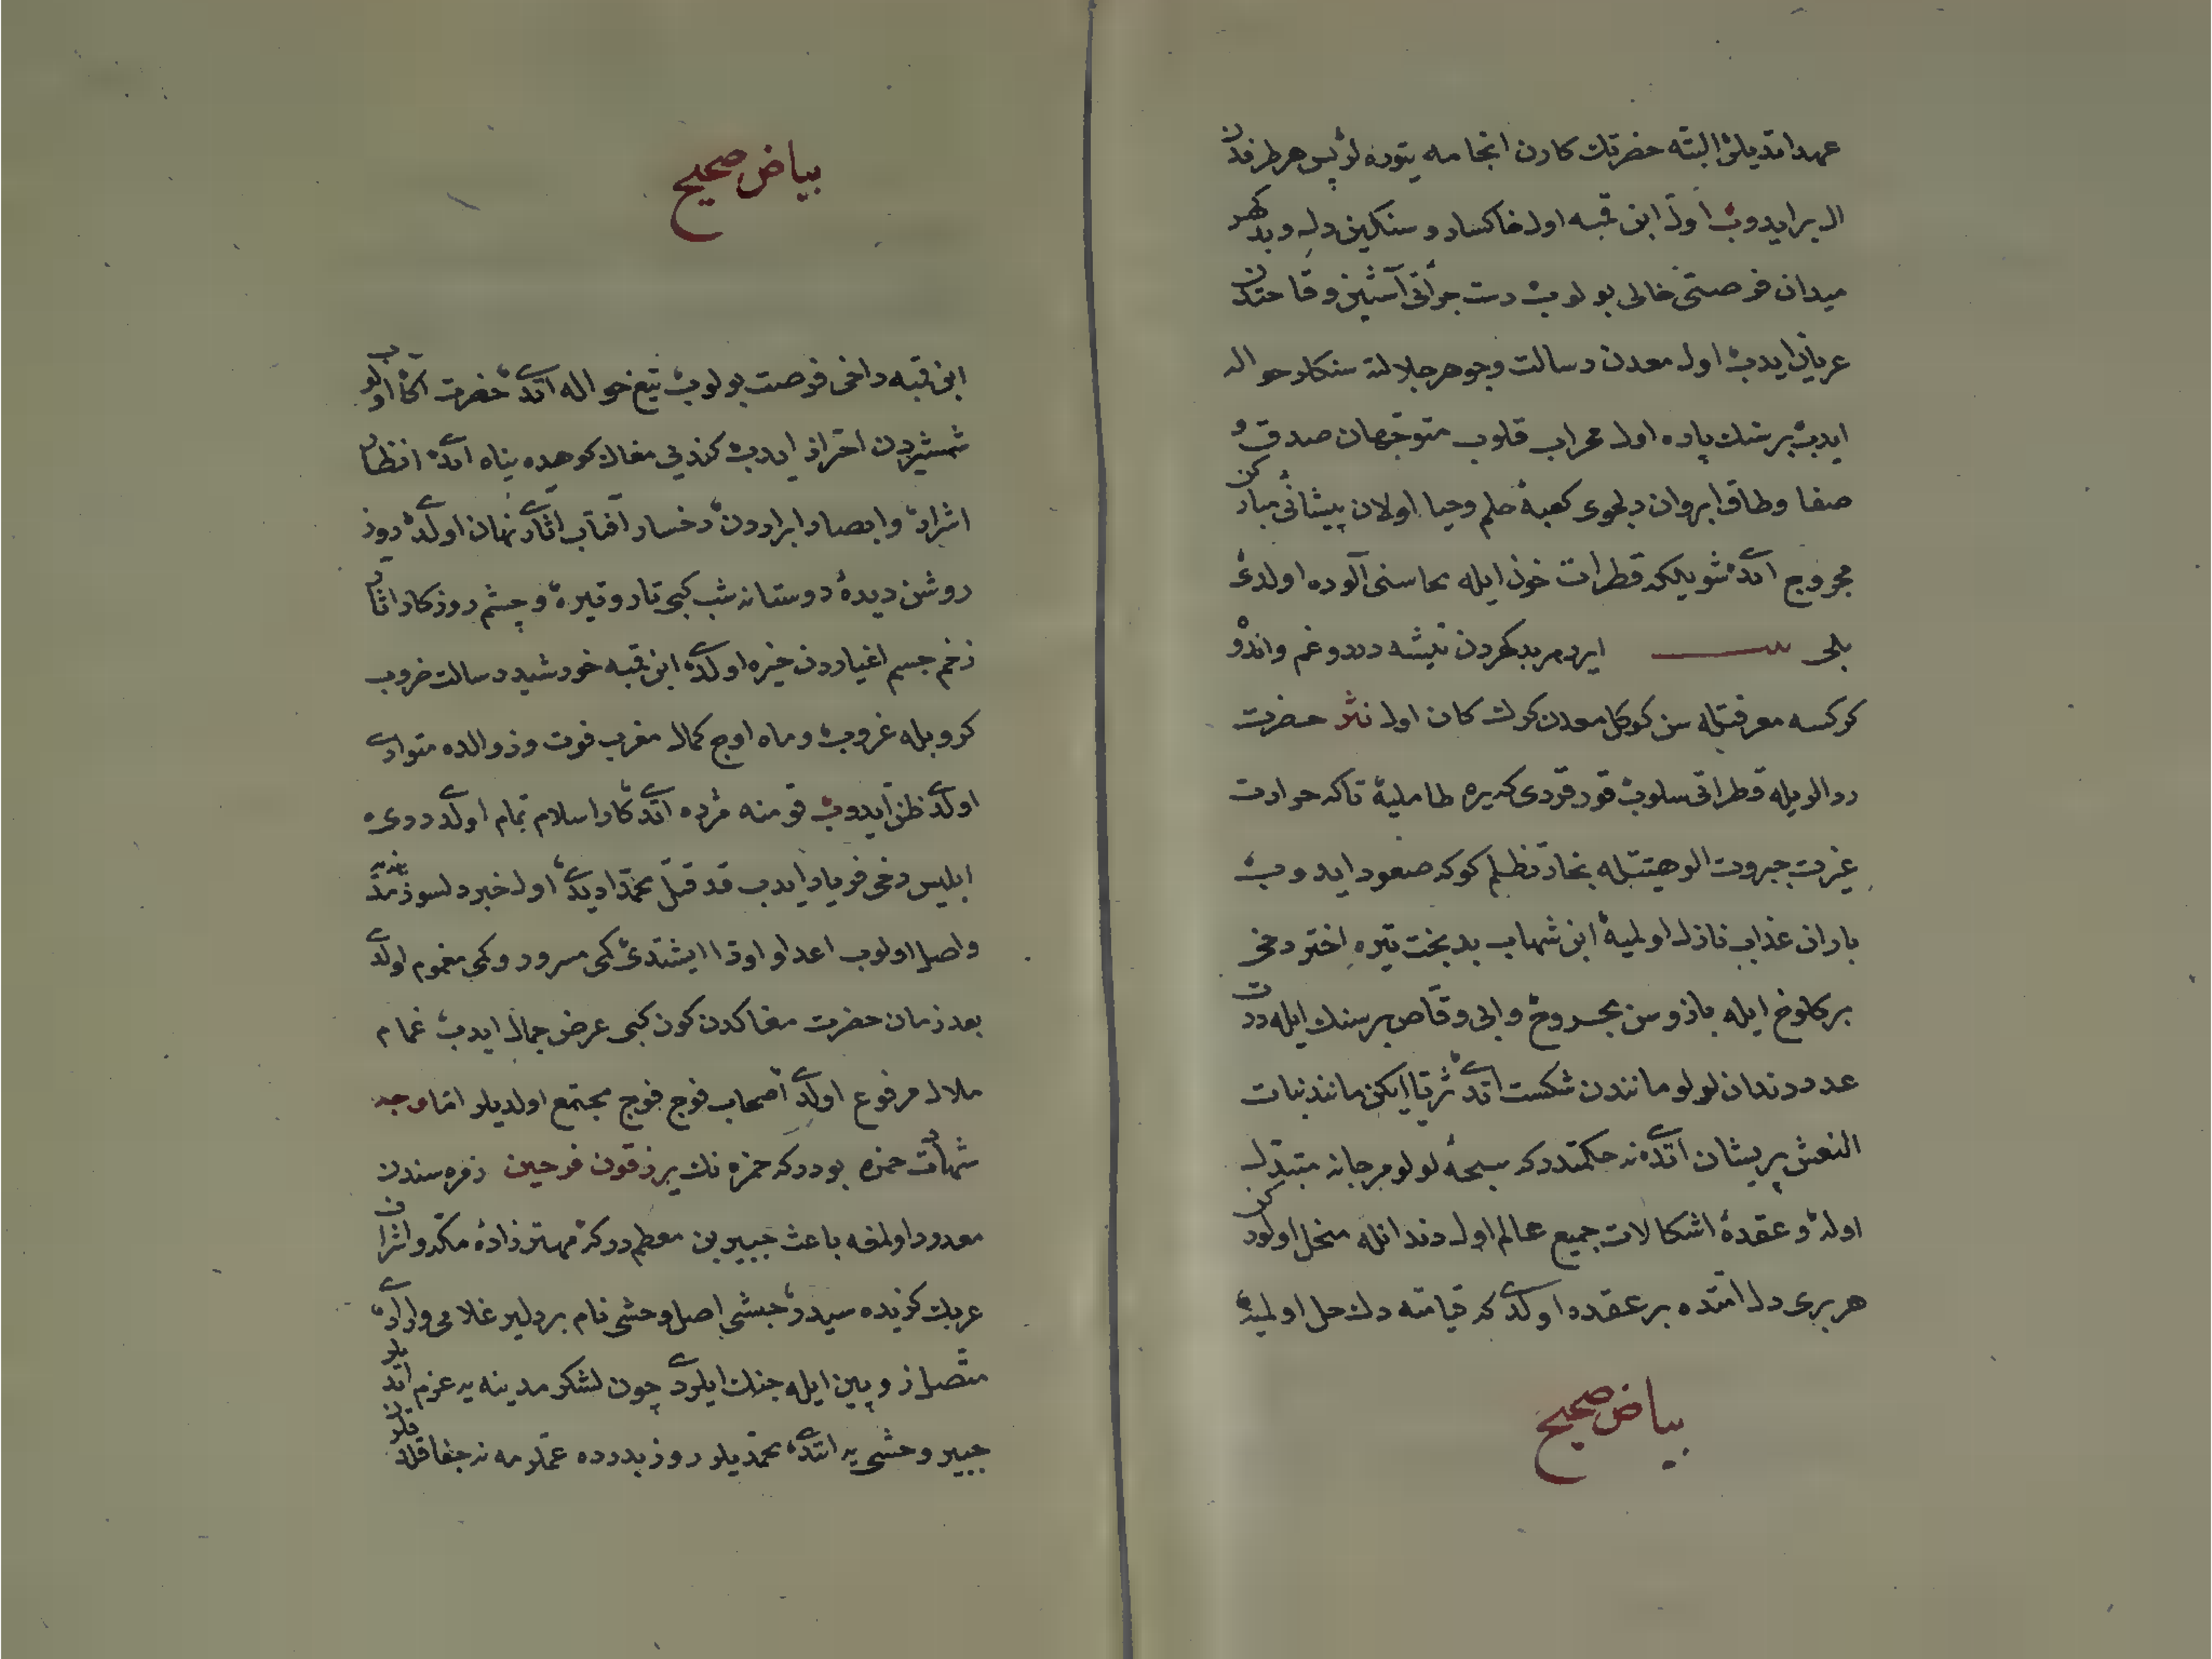 عهد اتدیلر البته حضرتك كارن انجامه یتوره لر پس هر طرفدن
ال بر ایدوب اول ابن قمه اول خاكسار و سنكین دل و بد كهر
میدان فرصتی خالی بولوب دست جرأتی آستین وقاحتدن
عریان ایدب اول معدن رسالت وجوهر جلالته سنكلر حواله
ایدب بر سنك پاره اول محراب قلوب متوجهان صدق و
صفا وطاق ابروان دلجوی كعبۀ حلم وحیا اولان پیشانئ مبارکن
مجروح اتدی شویلكه قطرات خون ایله محاسنی آلوده اولدی
بلی ایرر مر بد كهردن تیشه درد و غم واندوه
كركسه معرفتله سن كوكل معدن كرك كان اول نثر حضرت
ردالریله قطراتی سلوب قورقردی كه یره طاملیه تا كه حرارت
غیرت جبروت الوهیتله بخار تظلم كوكه صعود ایدوب
باران عذاب نازل اولمیه ابن شهاب بدبخت تیره اختر دخی
بر كلوخ ایله بازوسن مجروح وابی وقاص بر سنك ایله درت
عدد دندان لولو مانندن شكست اتدی ثریا ایكن مانند بنات
النعش پریشان اتدی نه حكمتدر كه سبحۀ لولو مرجانه متبدل
اوله و عقدۀ اشكالات جمیع عالم اول دندانله منحل اولوركن
هر بری دل امتده بر عقده اولدی كه قیامته دك حل اولمیه
بیاض صحیح
بیاض صحیح
ابن قمه داخی فرصت بولوب تیغ حواله اتدی حضرت اكا اولو
شمشیردن احتراز ایدب كندیی مغاك كوهده پناه اتدی انظار
اشرار و ابصار ابراردن رخسار آفتاب اثار نهان اولدی روز
روشن دیدۀ دوستانه شب كبی تار و تیره و چشم روزكار اثار
زخم جسم اغیاردن خیره اولدی ابن قمه خورشید رسالت ضروب
كروبله غروب و ماه اوج كمال مغرب فوت وزوالده متواری
اولدی ظن ایدوب قومنه مژده اتدی كار اسلام تمام اولدی دیو
ابلیس دخی فریاد ایدب قد قتل محمد دیدی اول خبر دلسوز مدینه
واصل اولوب اعدا و اودا ایشتدی كمی مسرور و كمی مغموم اولدی
بعد زمان حضرت مغاكدن كون كبی عرض جمال ایدب غمام
ملال مرفوع اولدی اصحاب فوج فوج مجتمع اولدیلر اما وجه
شهادت حمزه بودر كه حمزه نك یرزقون فرحین زمره سندن
معدود اولمغه باعث جبیر بن معطم در كه مهتر زادۀ مكه و اشراف
عربك كزیده سیدر حبشی اصل وحشی نام بر دلیر غلامی وار ایدی
متصل زوپین ایله جنك ایلردی چون لشكر مدینه یه عزم اتدیلر
جبیر وحشی یه اتدی محمدیلر روز بدرده عملرمه نه جفا قلدیلر